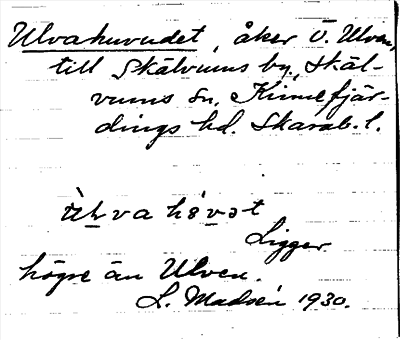 Ulvahuvudet, åker ö. Ulven,
till Skälvums by, Skäl-
vums sn, Kinnefjär-
dings hd. Skarab. l.
Ligger
högre än Ulven.
L. Madsén 1930.